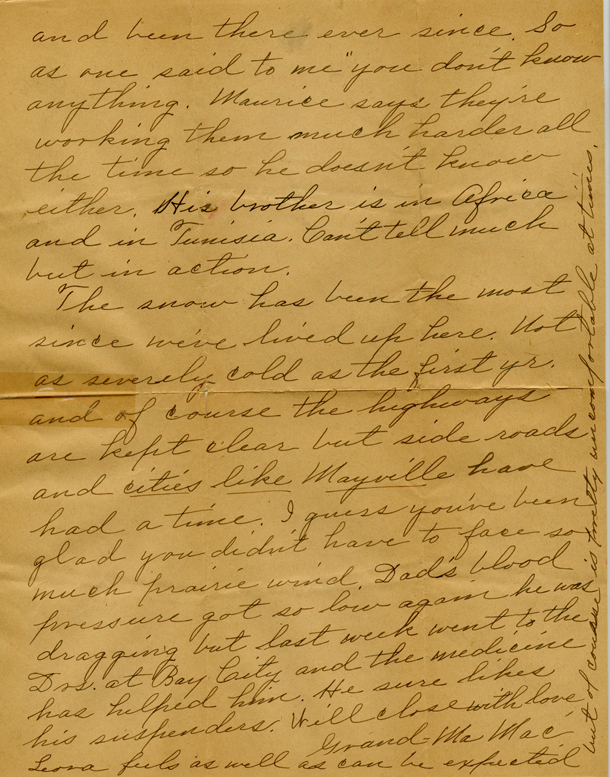 and been there ever since. So
as one said to me "you don't know
anything. Maurice says they're
working them much harder all
the time so he doesn't know
either. His brother is in Africa
and in Tunisia. Can't tell much
but in action.
The snow has been the most
since we've lived up here. Not
as severely cold as the first yr.
and of course the highways
are kept clear but side roads
and cities like Mayville have
had a time. I guess you've been
glad you didn't have to face so
much prairie wind. Dad's blood
pressure got so low again he was
dragging but last week went to the
Drs. at Bay City and the medicine
has helped him. He sure likes
his suspenders. Will close with love
Grand-Ma Mac
Leora feels as well as can be expected
but of course is pretty uncomfortable at times.